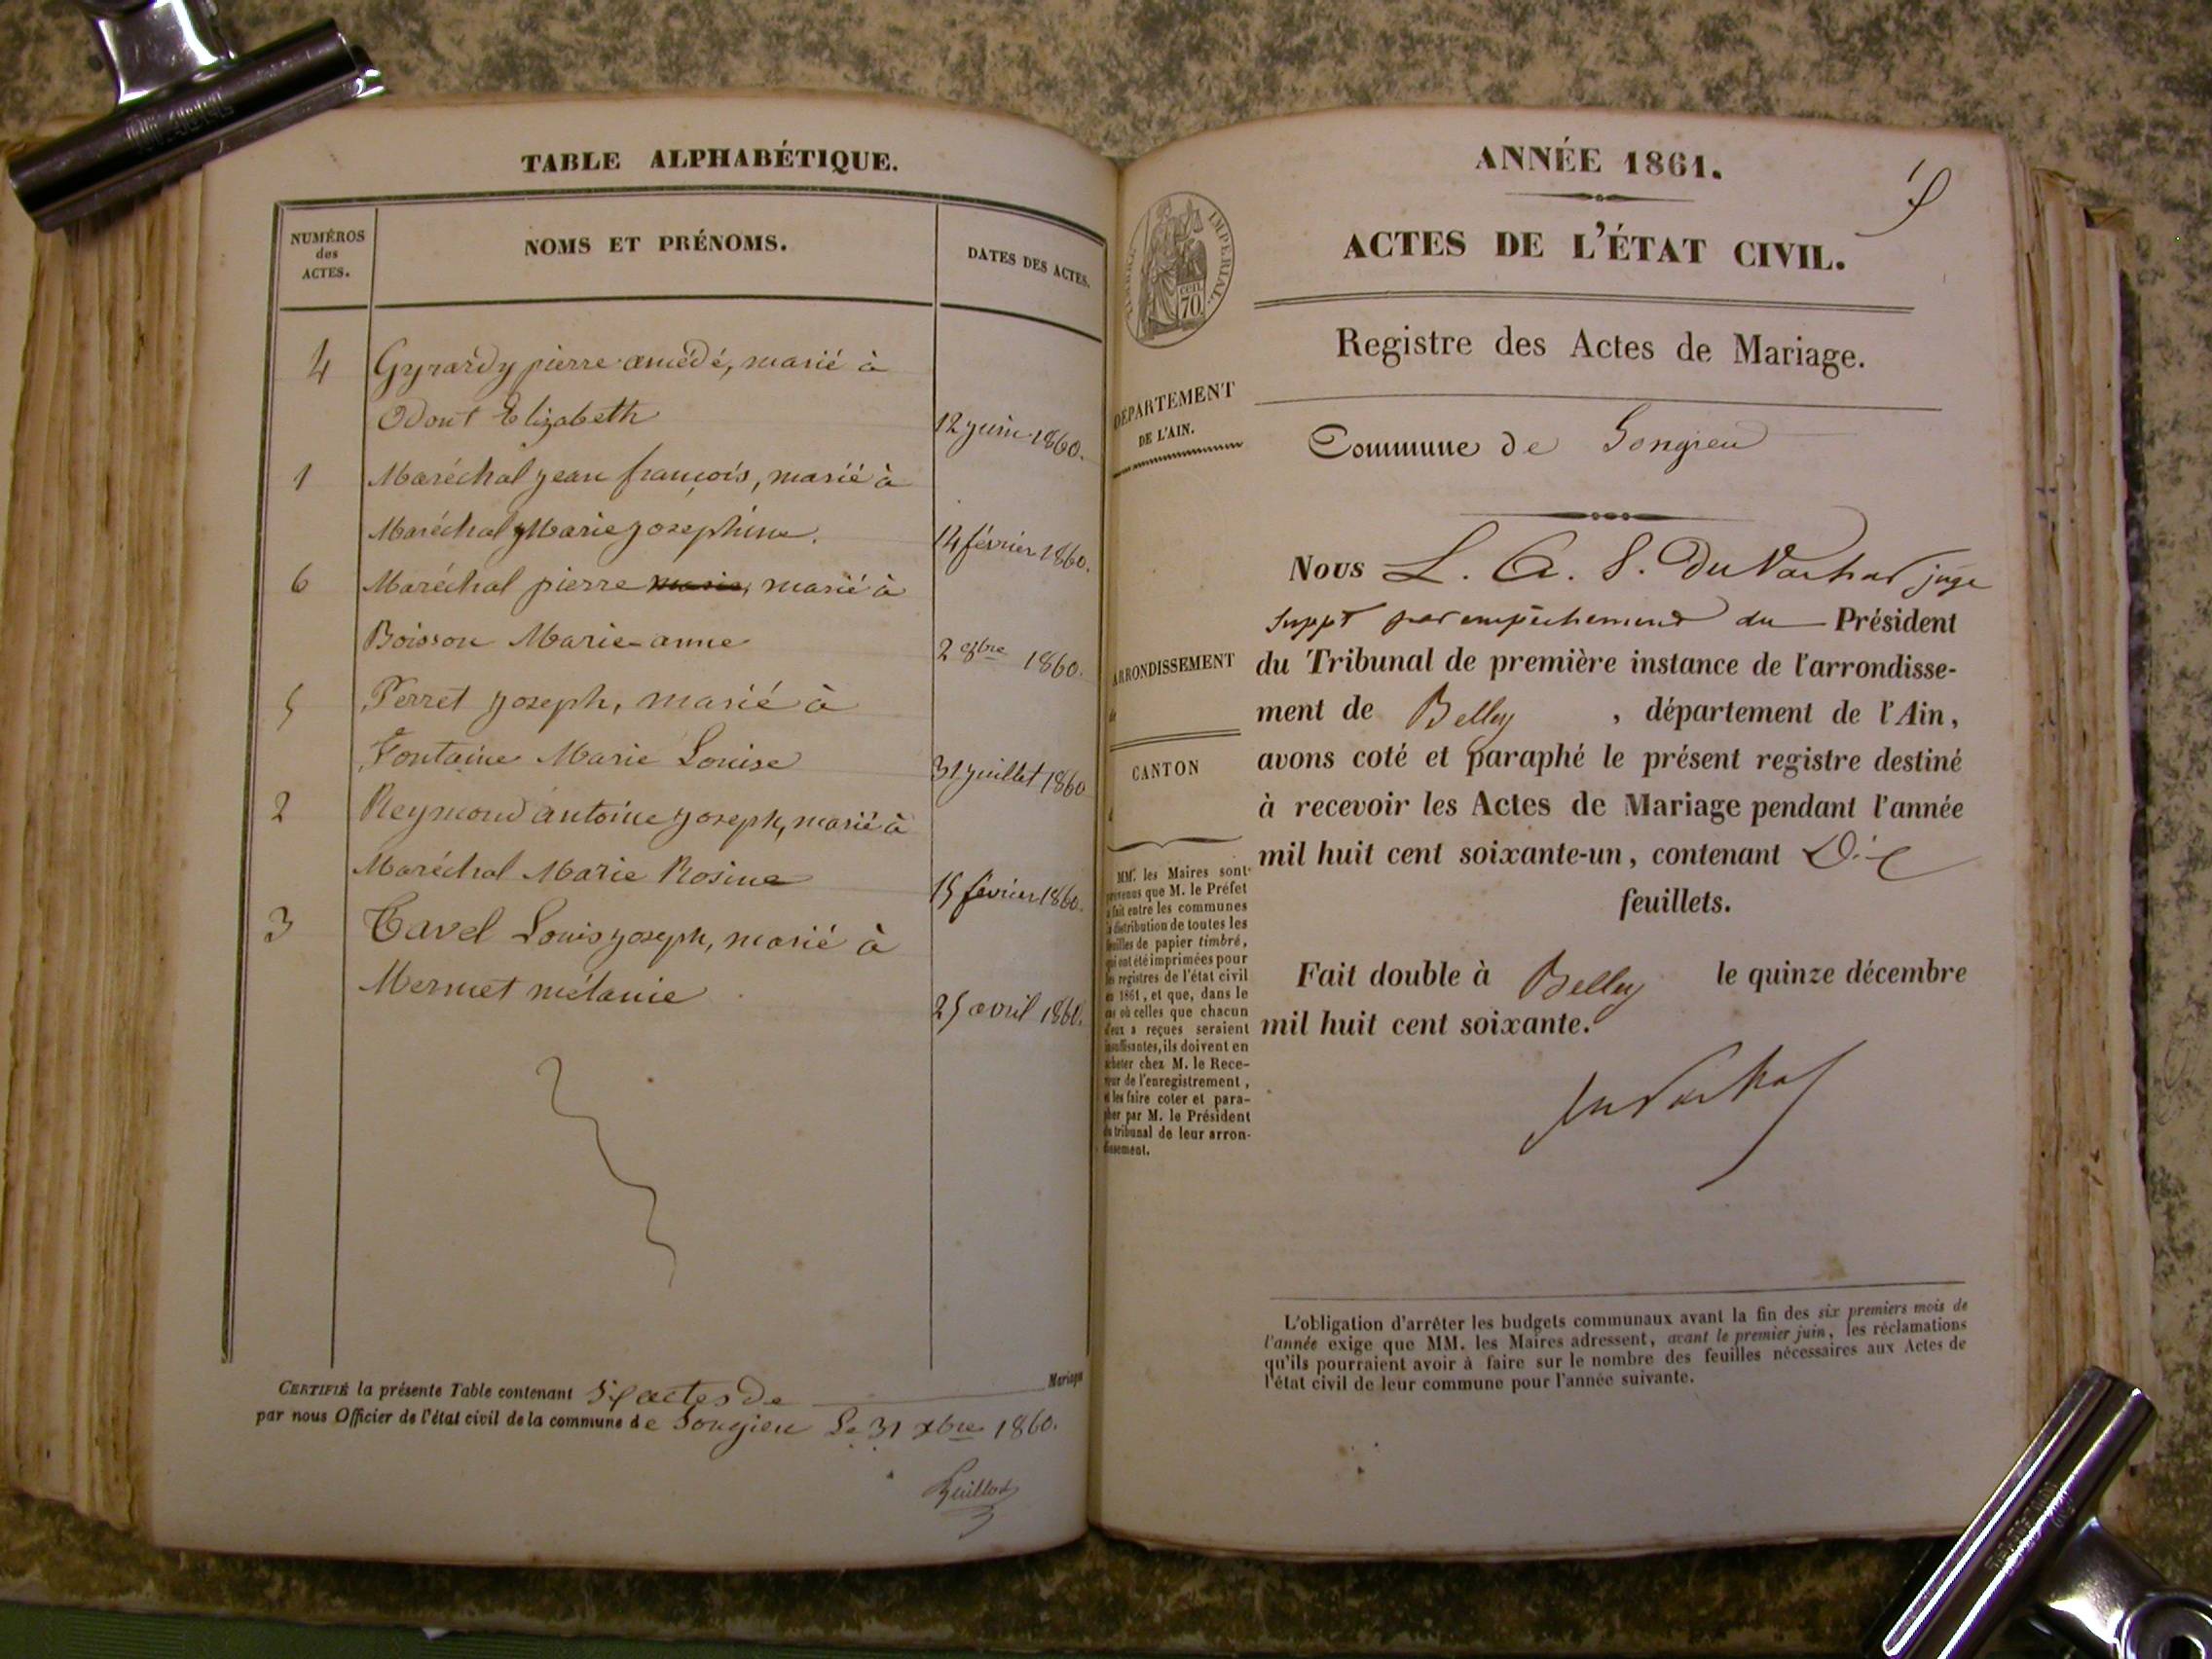 TABLE ALPHABÉTIQUE.
NUMÉROS
des
ACTES.
NOMS ET PRÉNOMS.
DATES DES ACTES.
4 Gyrardy pierre amédé, marié à
Odout Elizabeth 12 juin 1860.
1 Maréchal jean françois, marié à
Maréchal Marie josephine. 14 février 1860.
6 Maréchal pierre marié à
Boisson Marie-anne 2 1860.
5 Perret joseph, marié à
Fontaine Marie Louise 31 juillet 1860
2 Reymond antoine joseph, marié à
Maréchal Marie Rosine 15 février 1860.
3 Tavel Louis joseph, marié à
Mermet mélanie 25 avril 1860.
CERTIFIÉ la présente Table contenant actes de Mariage
par nous Officier de l'état civil de la commune de Songieu Le 31 xbre 1860.
Guillot
ANNÉE 1861.
ACTES DE L'ÉTAT CIVIL.
TIMBRE IMPERIAL
70
Registre des Actes de Mariage.
DÉPARTEMENT
DE L'AIN.
Commune de Songieu
Nous L. A. S. DuVachat juge
suppt par empêchement du Président
du Tribunal de première instance de l'arrondisse-
ment de Belley , département de l'Ain,
avons coté et paraphé le présent registre destiné
à recevoir les Actes de Mariage pendant l'année
mil huit cent soixante-un, contenant Dix
feuillets.
Fait double à Belley le quinze décembre
mil huit cent soixante.
DuVachat
ARRONDISSEMENT
de
CANTON
d
MM. les Maires sont
prévenus que M. le Préfet
a fait entre les communes
la distribution de toutes les
feuilles de papier timbré,
qui ont été imprimées pour
les registres de l'état civil
en 1861, et que, dans le
cas où celles que chacun
d'eux a reçues seraient
insuffisantes, ils doivent en
acheter chez M. le Rece-
veur de l'enregistrement,
et les faire coter et para-
pher par M. le Président
du tribunal de leur arron-
dissement.
L'obligation d'arrêter les budgets communaux avant la fin des six premiers mois de
l'année exige que MM. les Maires adressent, avant le premier juin, les réclamations
qu'ils pourraient avoir à faire sur le nombre des feuilles nécessaires aux Actes de
l'état civil de leur commune pour l'année suivante.